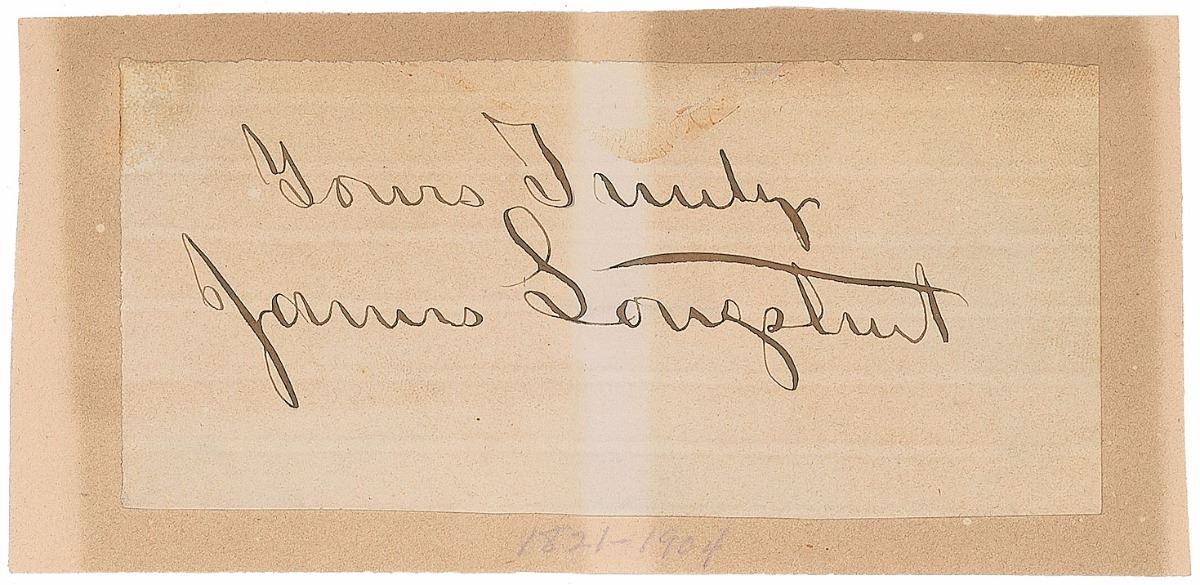 Yours Truly
James Longstreet
1821-1904